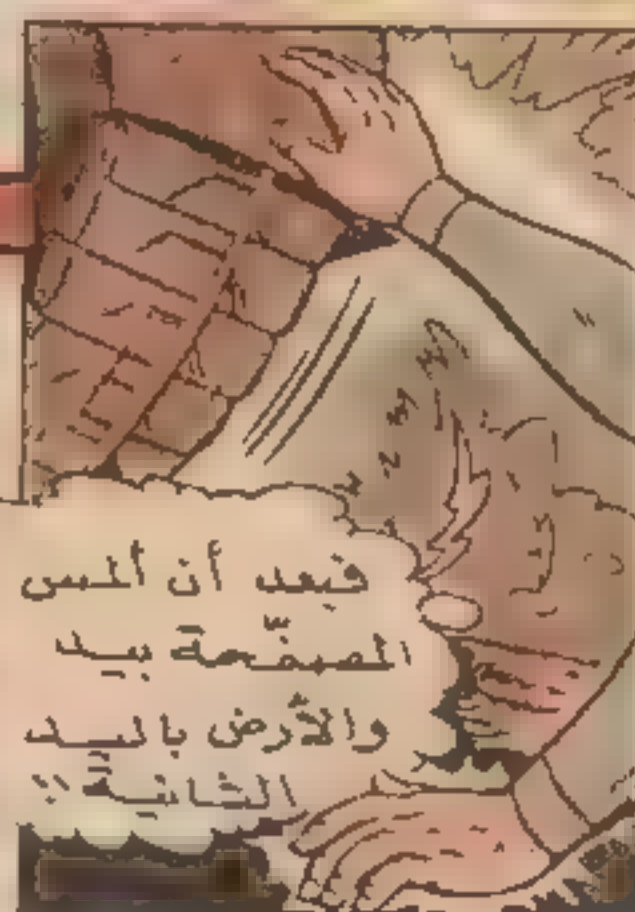 فبعد أن ألمس
المصفّحة بيد
والأرض باليد
الثانية !!